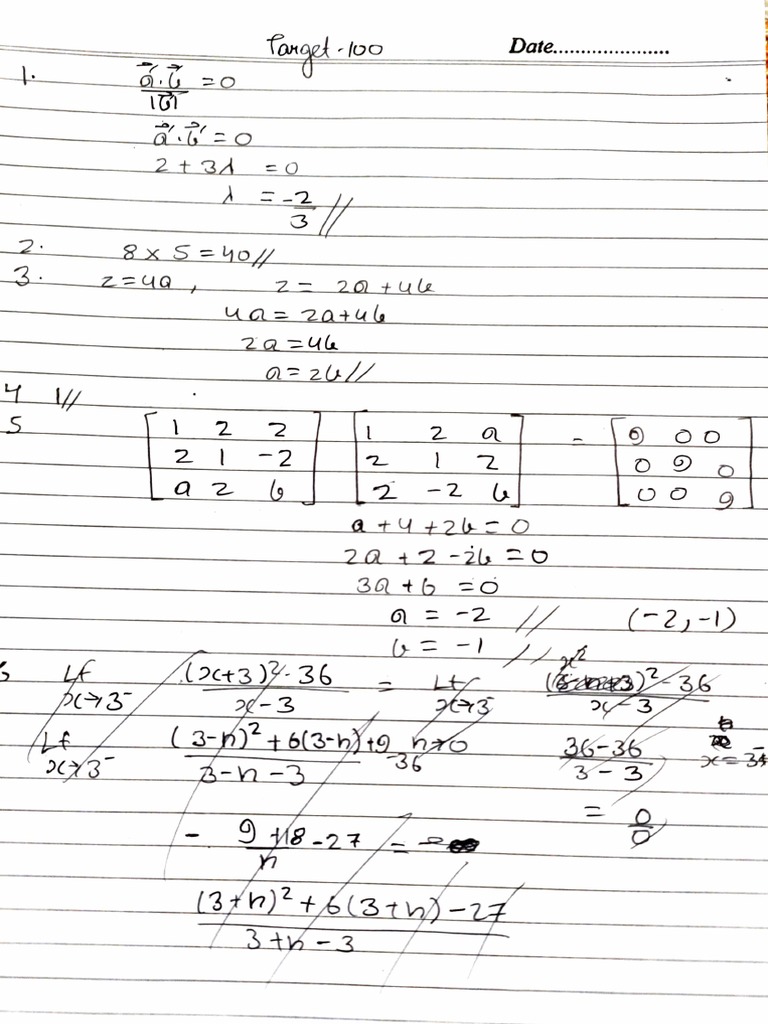 Target-100 Date.....................
1. a⃗·b⃗ / |b⃗| = 0
a⃗·b⃗ = 0
2 + 3λ = 0
λ = -2/3 //
2. 8 × 5 = 40//
3. z = 4a, z = 2a + 4b
4a = 2a+4b
2a = 4b
a = 2b//
4 1//
5 [1 2 2] [1 2 a] = [9 0 0]
[2 1 -2] [2 1 2] [0 9 0]
[a 2 b] [2 -2 b] [0 0 9]
a + 4 + 2b = 0
2a + 2 - 2b = 0
3a + 6 = 0
a = -2 // (-2, -1)
b = -1 //
Lt x→3⁻ (x+3)² - 36 / x-3 = Lt x→3⁻ )² - 36 / x-3
Lt x→3⁻ (3-h)² + 6(3-h) + 9 - 36 / 3-h-3 h→0 36-36 / 3-3 x = 3
= 0/0
- 9+18-27 / h = -
(3+h)² + 6(3+h) - 27 / 3+h-3